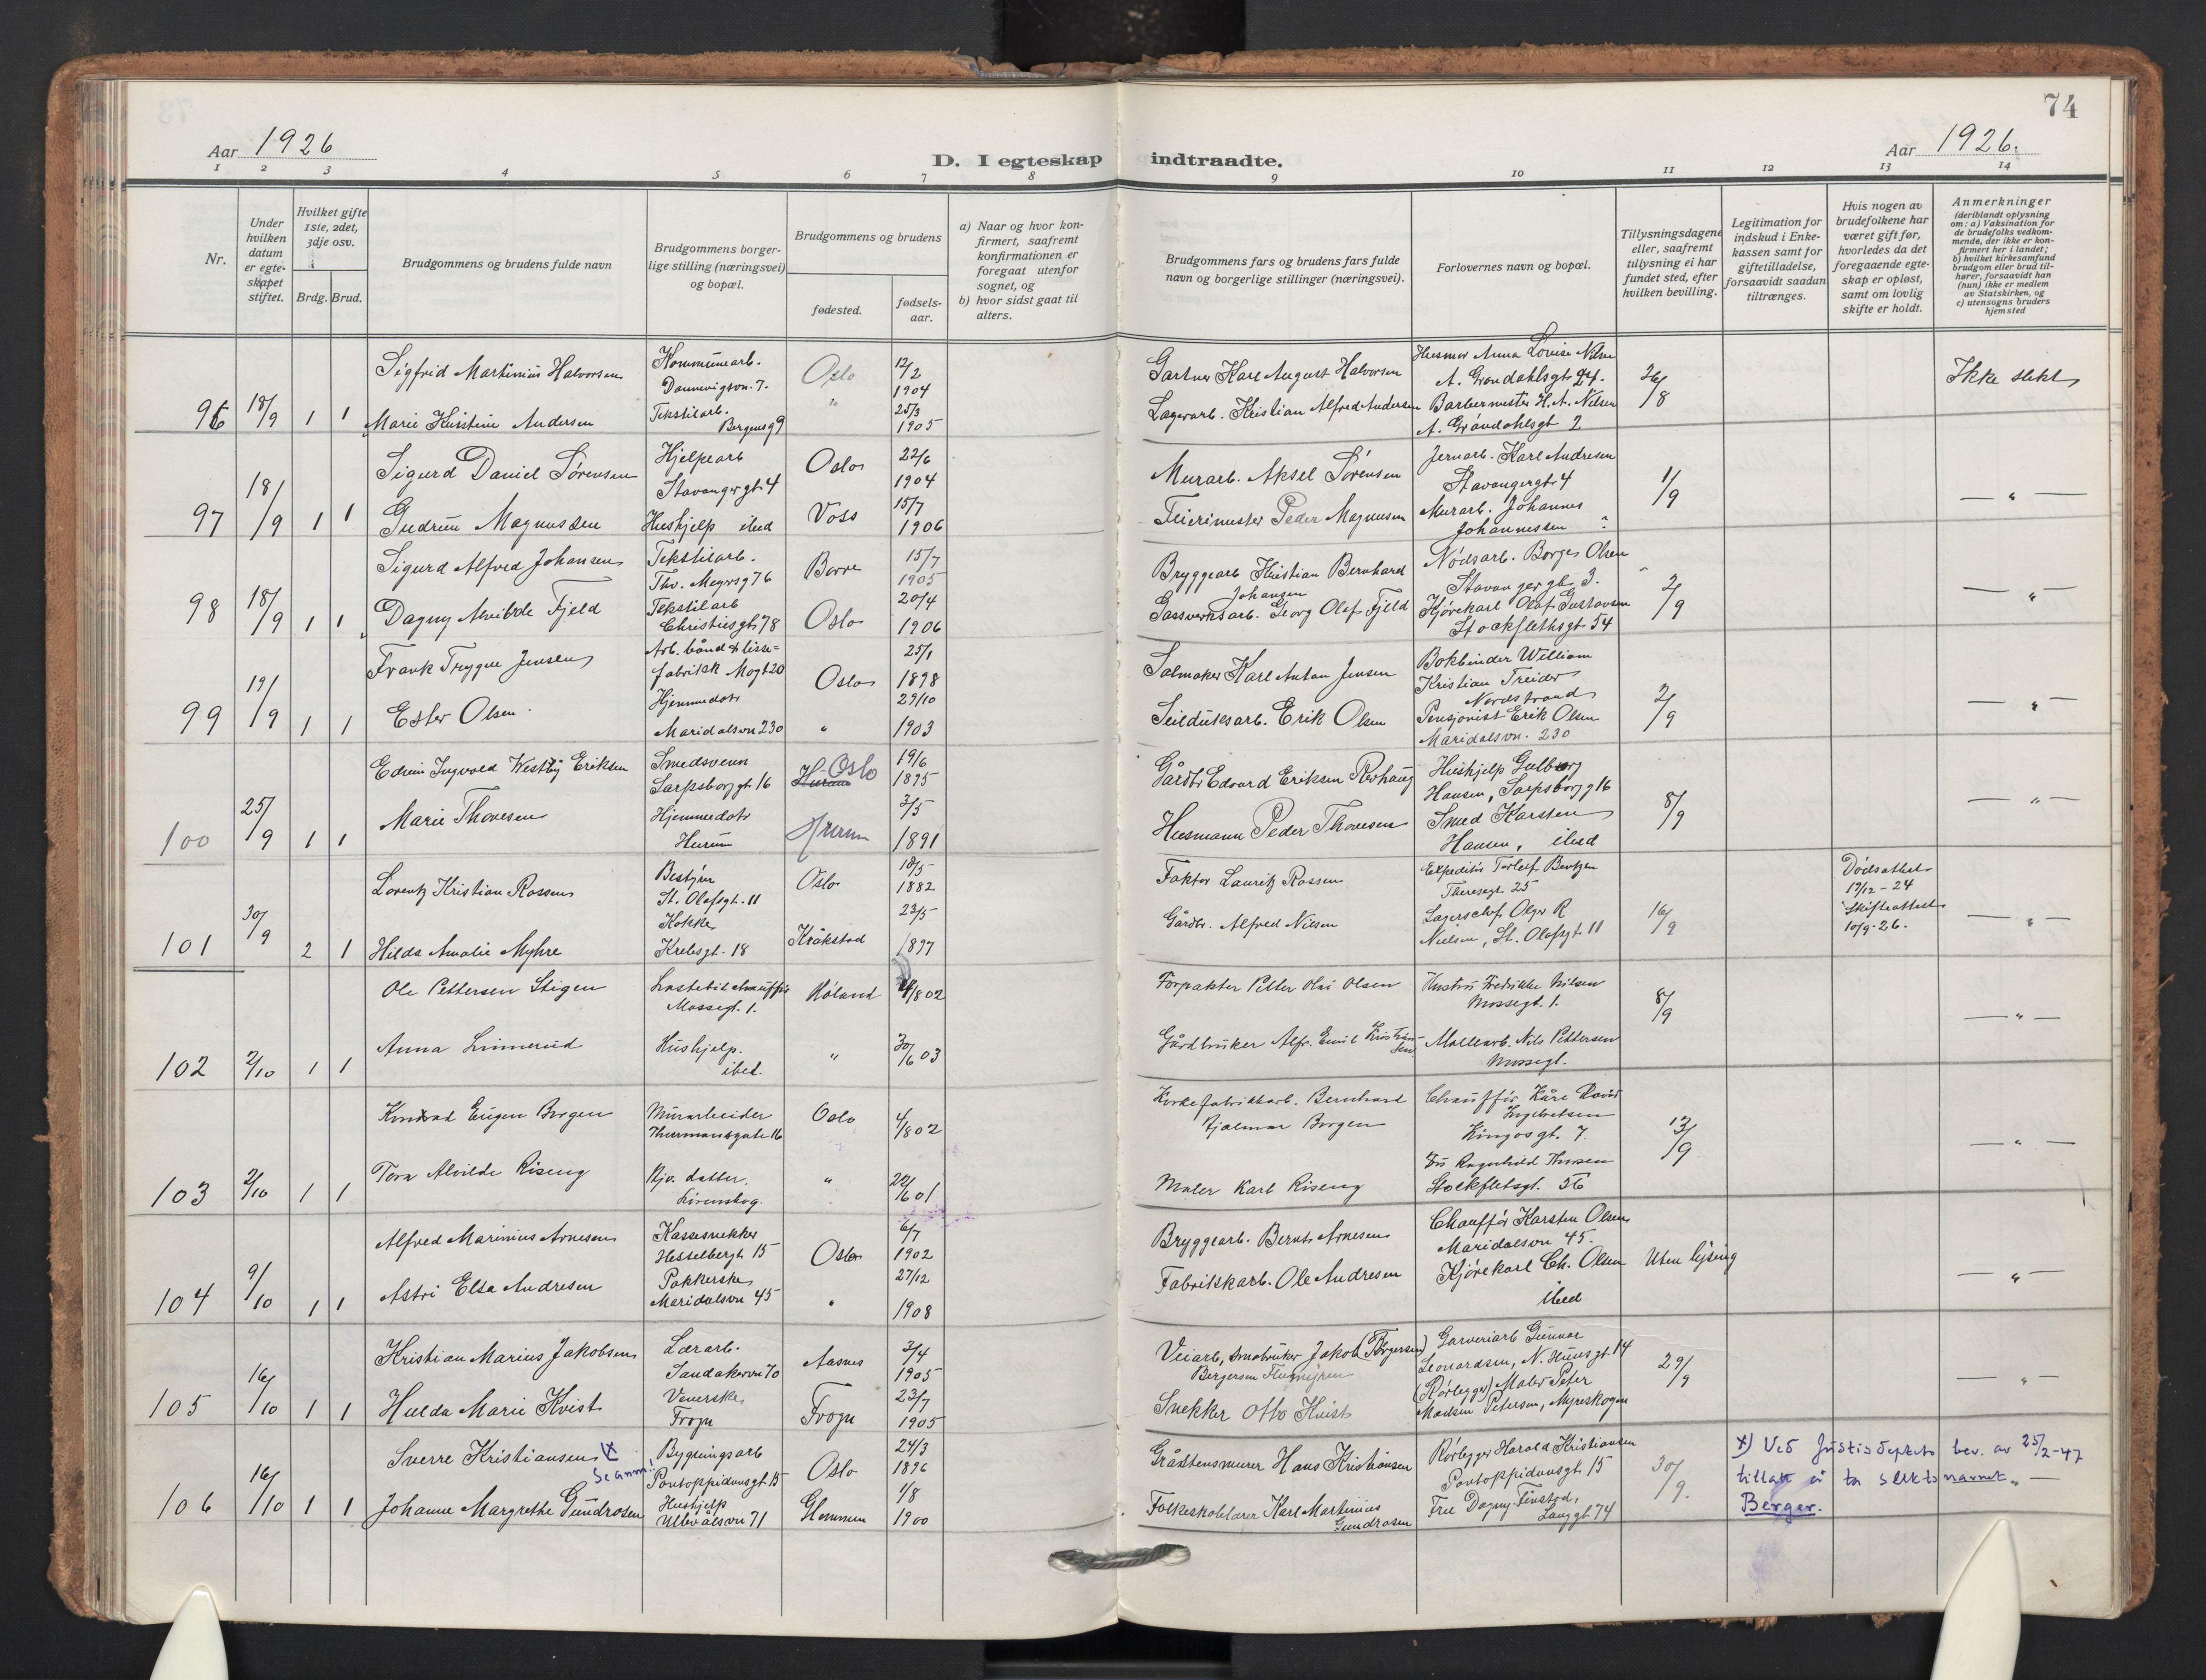 74
Aar 1926
D. I egteskap indtraadte.
Aar 1926.
1 2 3 4 5 6 7 8 9 10 11 12 13 14
Nr.
Under hvilken datum er egteskapet stiftet.
Hvilket gifte 1ste, 2det, 3dje osv.
Brdg. Brud.
Brudgommens og brudens fulde navn
Brudgommens borgerlige stilling (næringsvei) og bopæl.
Brudgommens og brudens
fødested.
fødselsaar.
a) Naar og hvor konfirmert, saafremt konfirmationen er foregaat utenfor sognet, og
b) hvor sidst gaat til alters.
Brudgommens fars og brudens fars fulde navn og borgerlige stillinger (næringsvei).
Forlovernes navn og bopæl.
Tillysningsdagene eller, saafremt tillysning ei har fundet sted, efter hvilken bevilling.
Legitimation for indskud i Enkekassen samt for giftetilladelse, forsaavidt saadan tiltrænges.
Hvis nogen av brudefolkene har været gift før, hvorledes da det foregaaende egteskap er opløst, samt om lovlig skifte er holdt.
Anmerkninger
(deriblandt oplysning om: a) Vaksination for de brudefolks vedkommende, der ikke er konfirmert her i landet; b) hvilket kirkesamfund brudgom eller brud tilhører, forsaavidt han (hun) ikke er medlem av Statskirken, og c) utensogns bruders hjemsted
Sigfrid Martinius Halvorsen Kommunearb. Dannevigsvn. 7. Oslo 12/2 1904 Gartner Karl August Halvorsen Husmor Anna Lovise Nilsen A. Grøndahlsgt. 24. 26/8 Ikke slekt
96 18/9 1 1 Marie Kristine Andersen Tekstilarb. Bergensg 9 " 25/3 1905 Lagerarb. Kristian Alfred Andersen Barbermester H. A. Nilsen A. Grøndahlsgt 2
Sigurd Daniel Sørensen Hjelpearb Stavangergt. 4 Oslo 22/6 1904 Murarb. Aksel Sørensen Jernarb. Karl Andresen Stavangergt 4 1/9 — " —
97 18/9 1 1 Gudrun Magnussen Hushjelp ibid Voss 15/7 1906 Feiermester Peder Magnussen Murarb. Johannes Johannessen "
Sigurd Alfred Johansen Tekstilarb. Thv. Meyersg 76 Borre 15/7 1905 Bryggearb Kristian Bernhard Johansen Nødsarb. Borger Olsen Stavangergt. 3. 2/9 — " —
98 18/9 1 1 Dagny Alvilde Fjeld Tekstilarb Christiesgt. 78 Oslo 20/4 1906 Gassverksarb. Georg Olaf Fjeld Kjørekarl Olaf Gustavsen Stockflethsgt 54
Frank Trygve Jensen Arb. bånd & lissefabrikk Mogt 20 Oslo 25/1 1898 Salmaker Karl Anton Jensen Bokbinder William Kristian Treider Nordstrand 2/9 — " —
99 19/9 1 1 Ester Olsen Hjemmedatr Maridalsvn 230 " 29/10 1903 Seilduksarb. Erik Olsen Pensjonist Erik Olsen Maridalsvn. 230
Edvin Ingvald Westby Eriksen Smedsvenn Sarpsborggt. 16 Oslo 19/6 1895 Gårdbr Edvard Eriksen Revhaug Hushjelp Gulborg Hansen, Sarpsborgg 16 8/9 — " —
100 25/9 1 1 Marie Thoresen Hjemmedatr Hurum Hurum 3/5 1891 Husmann Peder Thoresen Smed Karsten Hansen, ibid
Lorentz Kristian Rossen Bestyrer St. Olafsgt. 11 Oslo 18/5 1882 Faktor Lauritz Rossen Expeditør Torleif Berntzen Theresegt. 25 16/9 Dødsattest 17/12-24 Skifteattest 10/9-26. — " —
101 30/9 2 1 Hilda Amalie Myhre Kokke Krebsgt. 18 Kråkstad 23/5 1897 Gårdbr. Alfred Nilsen Lagerschef Olger R Nielsen, St. Olafsgt 11
Ole Pettersen Stigen Lastebilchauffør Mossegt. 1. Høland 4/8 02 Forpakter Petter Olai Olsen Hustru Fredrikke Nilsen Mossegt. 1. 8/9 — " —
102 2/10 1 1 Anna Linnerud Hushjelp. ibid. " 30/6 03 Gårdbruker Alfr. Emil Kristiansen Møllearb. Nils Pettersen Mossegt.
Konrad Eugen Borgen Murarbeider Thurmannsgate 16 Oslo 4/8 02 Bernhard Hjalmar Borgen Chauffør Kåre Kingosgt. 7. 13/9 — " —
103 2/10 1 1 Tora Alvilde Riseng Hjv. datter. Lørenskog. " 22/6 01 Maler Karl Riseng Fru Ragnhild Stockfletsgt. 56
Alfred Marinius Arnesen Kassesnekker Hesselbergt. 15 Oslo 6/7 1902 Bryggearb. Bernt Arnesen Chauffør Karsten Olsen Maridalsvn 45. Uten lysing — " —
104 9/10 1 1 Astri Elsa Andresen Pakkerske Maridalsvn 45 " 27/12 1908 Fabrikkarb. Ole Andresen Kjørekarl Ch. Olsen ibid
Kristian Marius Jakobsen Lærarb. Sandakervn 70 Aasnes 3/4 1905 Veiarb, småbruker Jakob (Torgersen) Bergersen Garveriarb Gunnar Leonardsen, N. Huusgt. 14 29/9 — " —
105 16/10 1 1 Hulda Marie Kvist Veverske Frogn Frogn 23/7 1905 Snekker Otto Kvist (Rørlegger) Maler Peter Madsen Petersen, Myreskogen
Sverre Kristiansen x Se anm! Bygningsarb Pontoppidansgt. 15 Oslo 24/3 1896 Gråstensmurer Hans Kristiansen Rørlegger Harald Kristiansen Pontoppidansgt. 15 30/9. x) Ved Justisdeptets bev. av 25/2-47 tillatt å ta slektsnavnet Berger. — " —
106 16/10 1 1 Johanne Margrethe Gundrosen Hushjelp Ullevålsvn 71 Glemmen 1/8 1900 Folkeskolelærer Karl Martinius Gundrosen Fru Dagny Finstad, Langgt 74